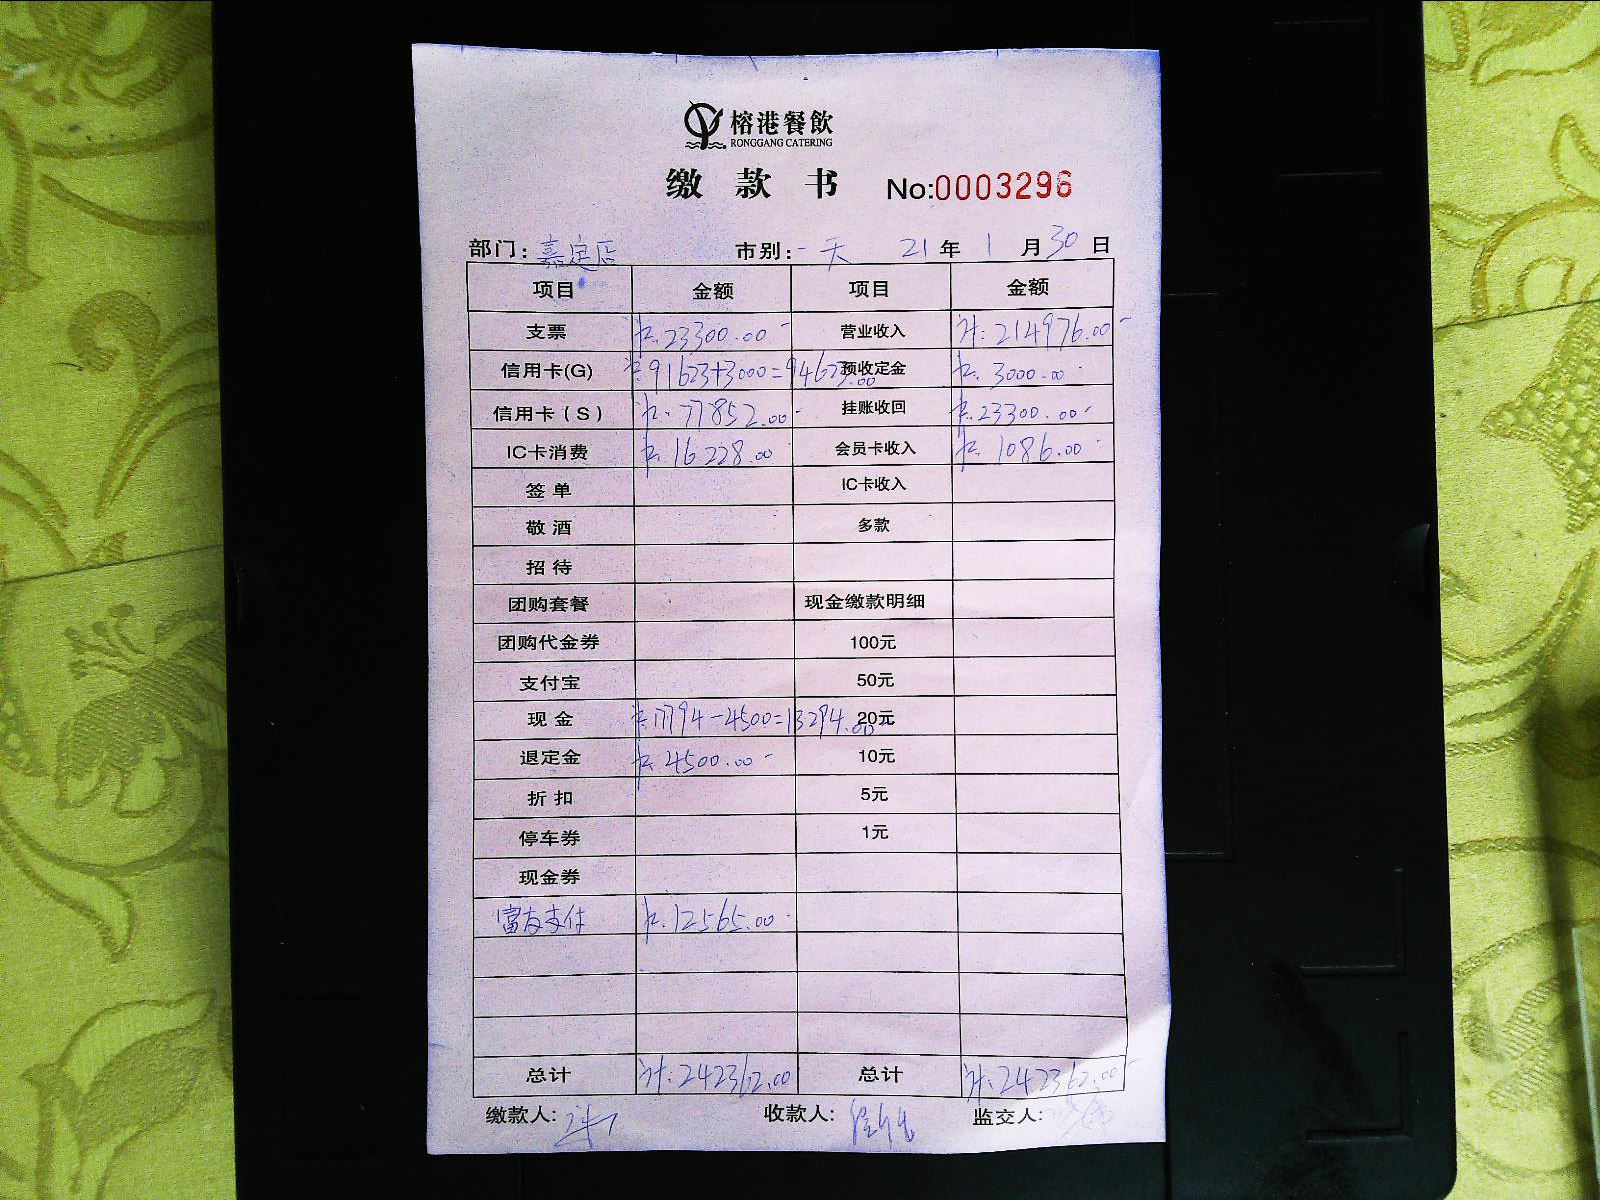 榕港餐飲
RONGGANG CATERING
缴款书 No:0003296
部门: 嘉定店 市别: 一天 21年1月30日
项目 金额 项目 金额
支票 计:23300.00 营业收入 计:214976.00
信用卡(G) 计:91623+3000=94623.00 预收定金 计:3000.00
信用卡(S) 计:77852.00 挂账收回 计:23300.00
IC卡消费 计:16228.00 会员卡收入 计:1086.00
签单 IC卡收入
敬酒 多款
招待
团购套餐 现金缴款明细
团购代金券 100元
支付宝 50元
现金 计:17794-4500=13294.00 20元
退定金 计:4500.00 10元
折扣 5元
停车券 1元
现金券
富友支付 计:12565.00
总计 计:242362.00 总计 计:242362.00
缴款人: 收款人: 监交人: